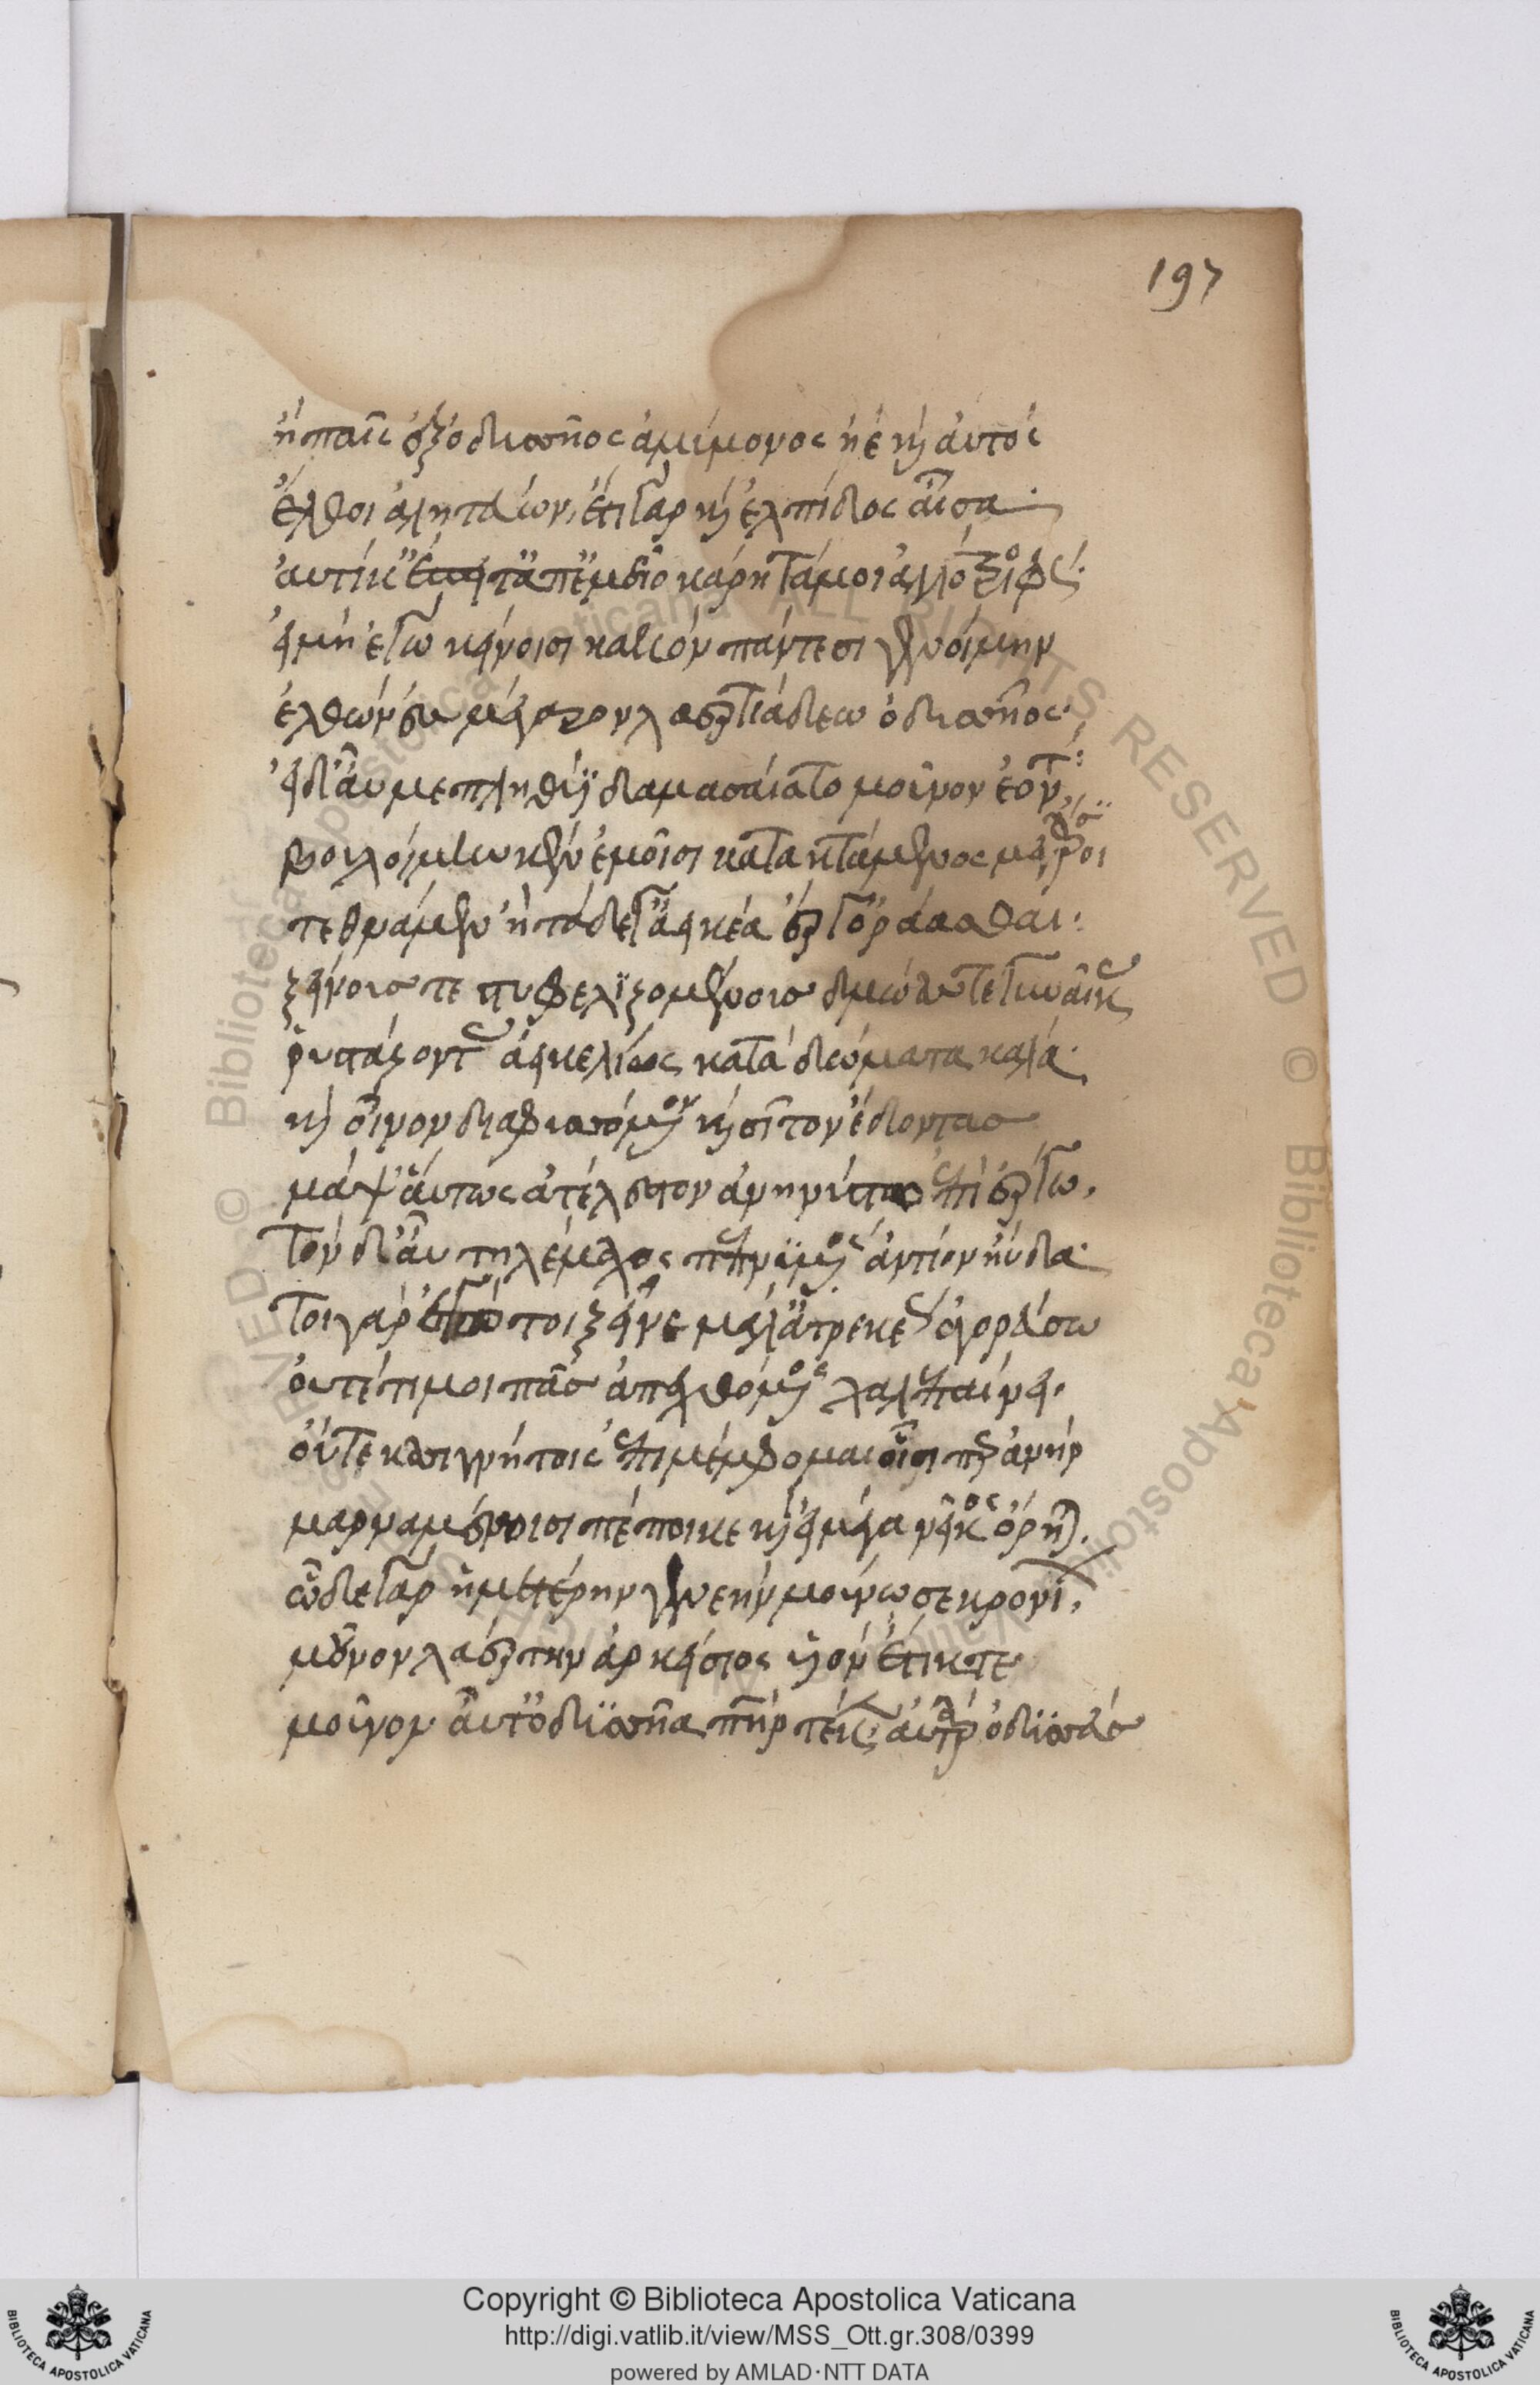 197
ἢ παῖς ἐξ ὀδυσῆος ἀμύμονος ἠὲ καὶ αὐτὸς
ἔλθοι ἀλητεύων, ἔτι γὰρ καὶ ἐλπίδος αἶσα
αὐτίκ' ἔπειτ' ἀπ' ἐμεῖο κάρη τάμοι ἀλλότριος φώς·
εἰ μὴ ἐγὼ κείνοισι κακὸν πάντεσι γενοίμην
ἐλθὼν ἐν μέγαρον λαερτιάδεω ὀδυσῆος·
εἰ δ' αὖ με πληθύϊ δαμασαίατο μοῦνον ἐόντα,
βουλοίμην κεν ἐμοῖσι κατακτάμενος μεγάροισι
τεθνάμεν ἢ τάδε γ' ἀεικέα ἔργ' ὁράασθαι·
ξείνους τε στυφελιζομένους δμωάς τε γυναῖκας
ῥυστάζοντας ἀεικελίως κατὰ δώματα καλά·
καὶ οἶνον διαφυσσόμενον καὶ σῖτον ἔδοντας
μὰψ αὔτως ἀτέλεστον ἀνηνύστω ἐπὶ ἔργω,
τὸν δ' αὖ τηλέμαχος πεπνυμένος ἀντίον ηὔδα·
τοιγὰρ ἐγώ τοι ξεῖνε μάλ' ἀτρεκέως ἀγορεύσω
οὔτέ τί μοι πᾶς ἀπεχθόμενος χαλεπαίνει.
οὔτε κασιγνήτοις ἐπιμέμφομαι οἷσί περ ἀνὴρ
μαρναμένοισι πέποιθε καὶ εἰ μέγα νεῖκος ὄρηται.
ὧδε γὰρ ἡμετέρην γενεὴν μούνωσε κρονίων,
μοῦνον λαέρτην ἀρκείσιος υἱὸν ἔτικτε
μοῦνον δ' αὖτ' ὀδυσῆα πατὴρ τέκεν· αὐτὰρ ὀδυσσεὺς
Copyright © Biblioteca Apostolica Vaticana
http://digi.vatlib.it/view/MSS_Ott.gr.308/0399
powered by AMLAD·NTT DATA